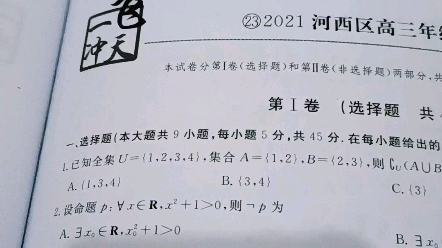 一飞
冲天
㉓2021 河西区高三年
本试卷分第Ⅰ卷(选择题)和第Ⅱ卷(非选择题)两部分,共
第Ⅰ卷 (选择题 共
一、选择题(本大题共 9 小题,每小题 5 分,共 45 分.在每小题给出的
1.已知全集 U={1,2,3,4},集合 A={1,2},B={2,3},则∁U(A∪B
A.{1,3,4} B.{3,4} C.{3}
2.设命题 p:∀x∈R,x²+1>0,则¬p 为
A.∃x₀∈R,x₀²+1>0 B.∃x